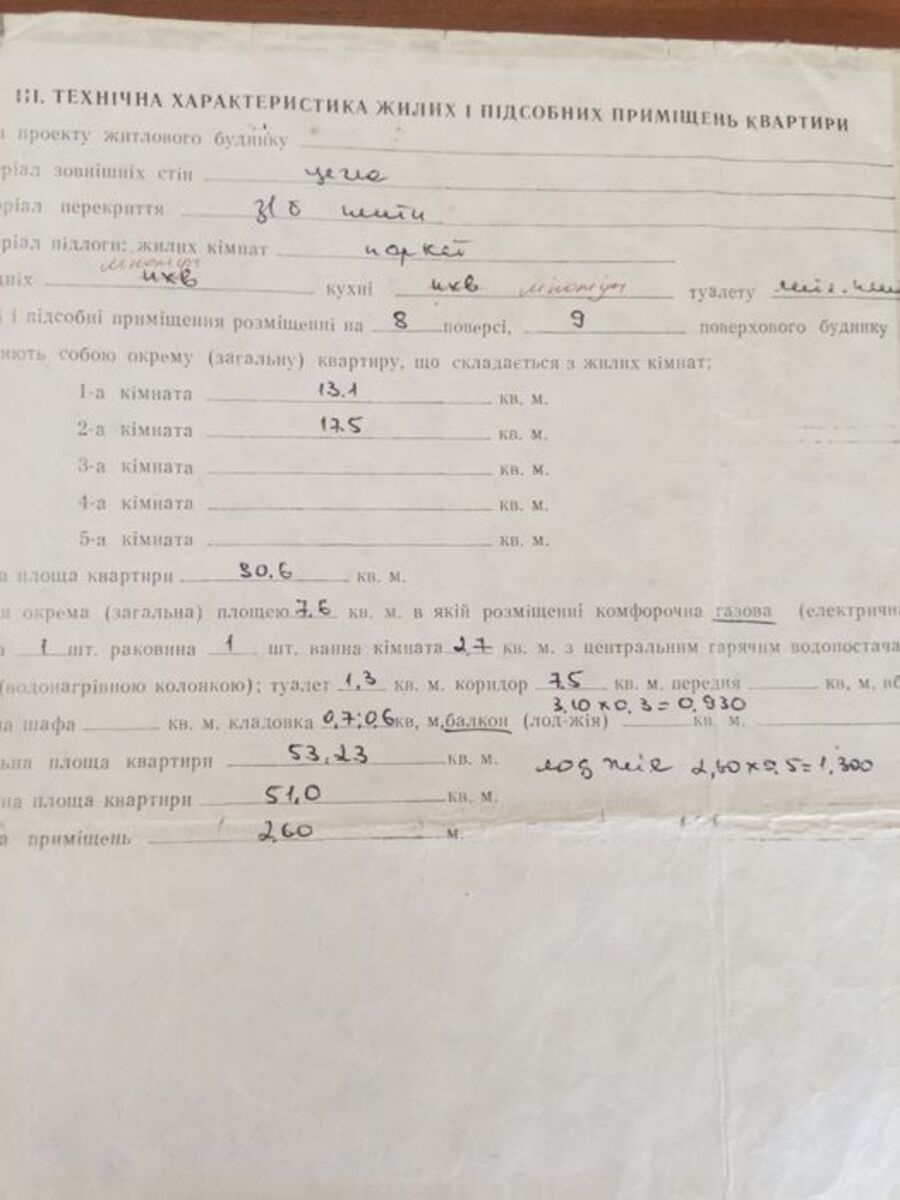 III. ТЕХНІЧНА ХАРАКТЕРИСТИКА ЖИЛИХ І ПІДСОБНИХ ПРИМІЩЕНЬ КВАРТИРИ
проекту житлового будинку
ріал зовнішніх стін цегла
ріал перекриття з/б плити
ріал підлоги: жилих кімнат паркет
лінолеум
ніх пхв кухні пхв лінолеум туалету
і підсобні приміщення розміщенні на 8 поверсі, 9 поверхового будинку
яють собою окрему (загальну) квартиру, що складається з жилих кімнат:
1-а кімната 13.1 кв. м.
2-а кімната 17.5 кв. м.
3-а кімната кв. м.
4-а кімната кв. м.
5-а кімната кв. м.
а площа квартири 30,6 кв. м.
я окрема (загальна) площею 7,6 кв. м. в якій розміщенні комфорочна газова (електрична
1 шт. раковина 1 шт. ванна кімната 2,7 кв. м. з центральним гарячим водопоста
(водонагрівною колонкою); туалет 1,3 кв. м. коридор 7,5 кв. м. передня кв, м, вб
3,10 х 0,3 = 0,930
на шафа кв. м. кладовка 0,7; 0,6 кв, м, балкон (лод-жія) кв. м.
ьна площа квартири 53,23 кв. м. лоджія 2,60 х 0,5 = 1,300
на площа квартири 51,0 кв. м.
а приміщень 2,60 м.